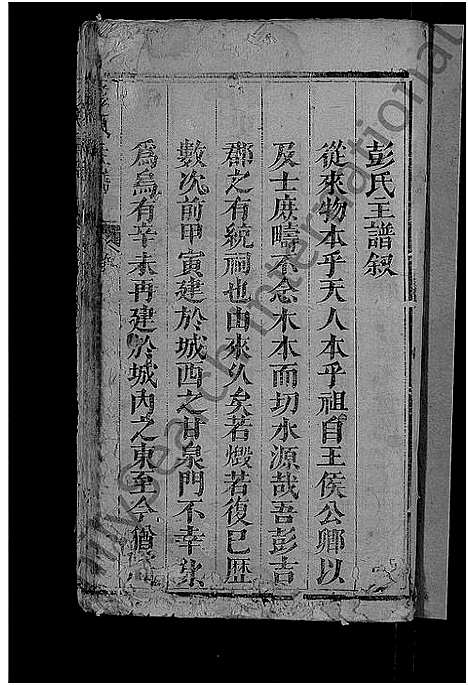 彭氏主譜叙
從來物本乎天人本乎祖自王侯公卿以
及士庶疇不念木本而切水源哉吾彭吉
郡之有統祠也由來久矣若燬若復已歷
數次前甲寅建於城西之甘泉門不幸
爲烏有辛未再建於城內之東至今猶
FamilySearch International